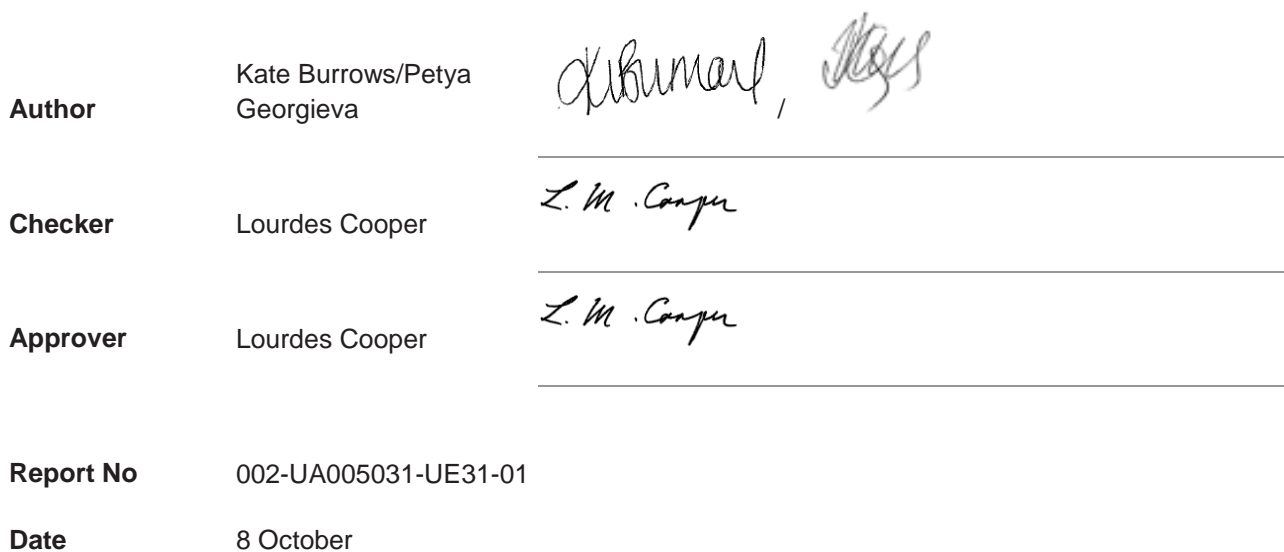 Kate Burrows/Petya
Author Georgieva /
Checker Lourdes Cooper L. M. Cooper
Approver Lourdes Cooper L. M. Cooper
Report No 002-UA005031-UE31-01
Date 8 October